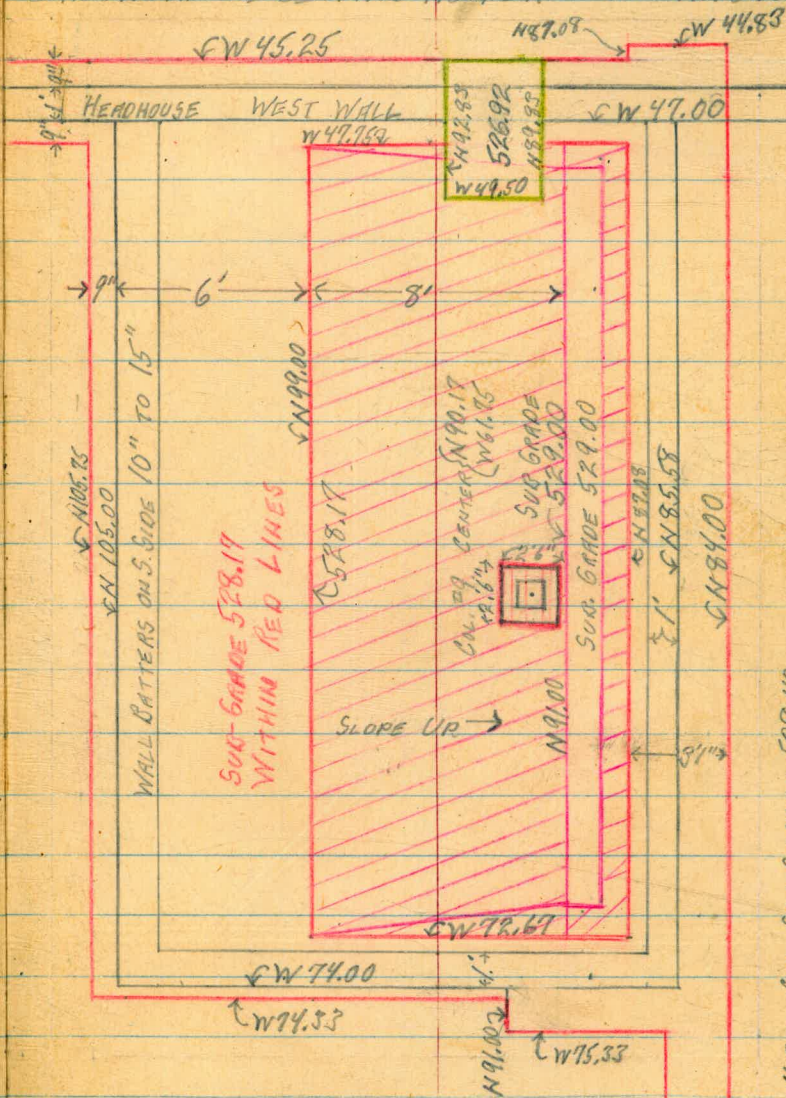 W 45.25
N87.08
W 44.83
9" 1' 9"
HEADHOUSE WEST WALL
W 47.00
W 47.75
N92.83
526.92
N89.83
W 49.50
9"
6'
8'
N99.00
N105.75
N 105.00
WALL BATTERS ON S. SIDE 10" TO 15"
SUB-GRADE 528.17
WITHIN RED LINES
528.17
COL. CENTERS
N90.17
W61.75
SUB GRADE
529.00
SUB. GRADE 529.00
2'6"
2'6"
N87.08
N85.58
1'
N84.00
SLOPE UP
N91.00
3'1"
W 72.67
1'
W 74.00
W74.33
N91.00
W75.33